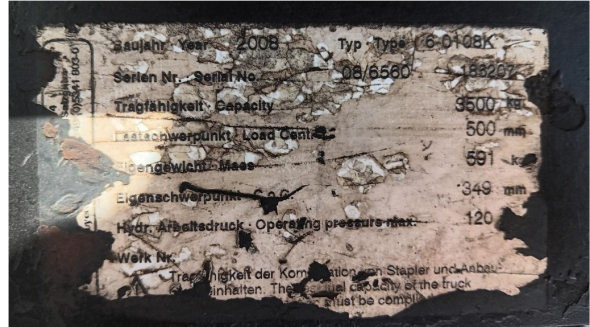 Baujahr · Year 2008 Typ · Type 6-0108K
Serien Nr. · Serial No. 08/6560
Tragfähigkeit · Capacity 3500 kg
Lastschwerpunkt · Load Centre 500 mm
Eigengewicht · Mass 591 kg
Eigenschwerpunkt · C.o.G. 349 mm
Hydr. Arbeitsdruck · Operating pressure max. 120
Werk Nr.
Tragfähigkeit der Kombination von Stapler und Anbau-
einhalten. The residual capacity of the truck
must be